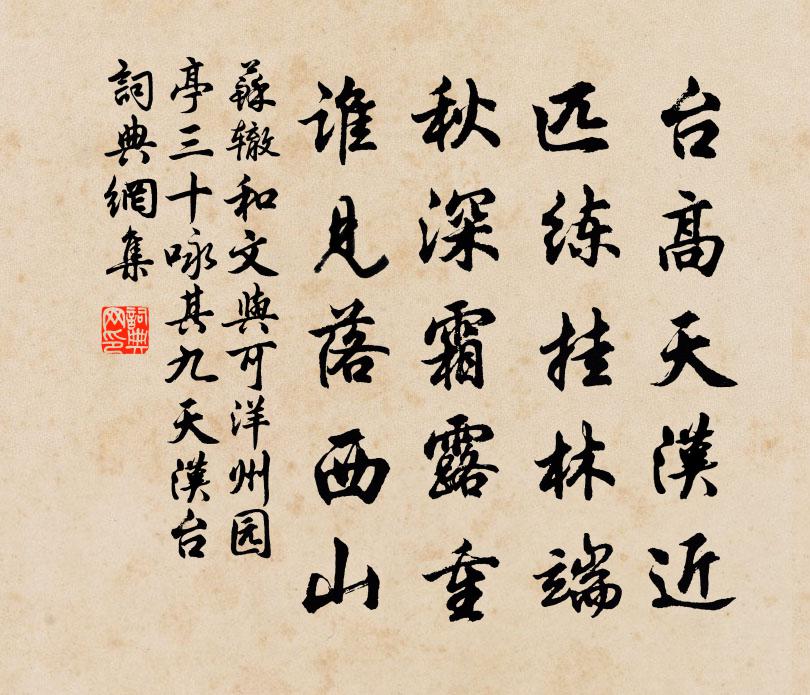 台高天漢近
匹练挂林端
秋深霜露重
谁见落西山
蘇辙和文與可洋州园
亭三十咏其九天漢台
詞典網集
詞典
网印